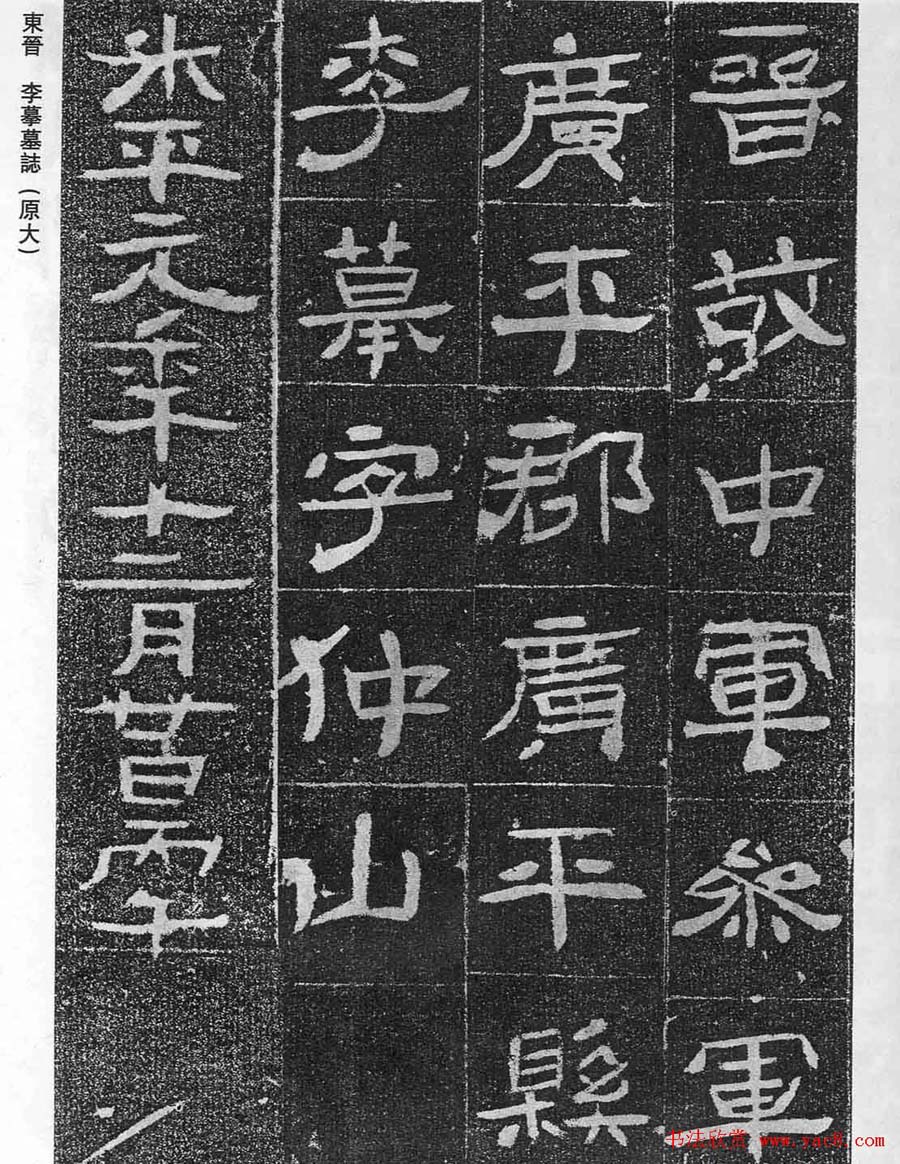 晉故中軍參軍
廣平郡廣平縣
李摹字仲山
升平元年十二月廿日丙午
東晉　李摹墓誌（原大）
书法欣赏 www.yac8.com